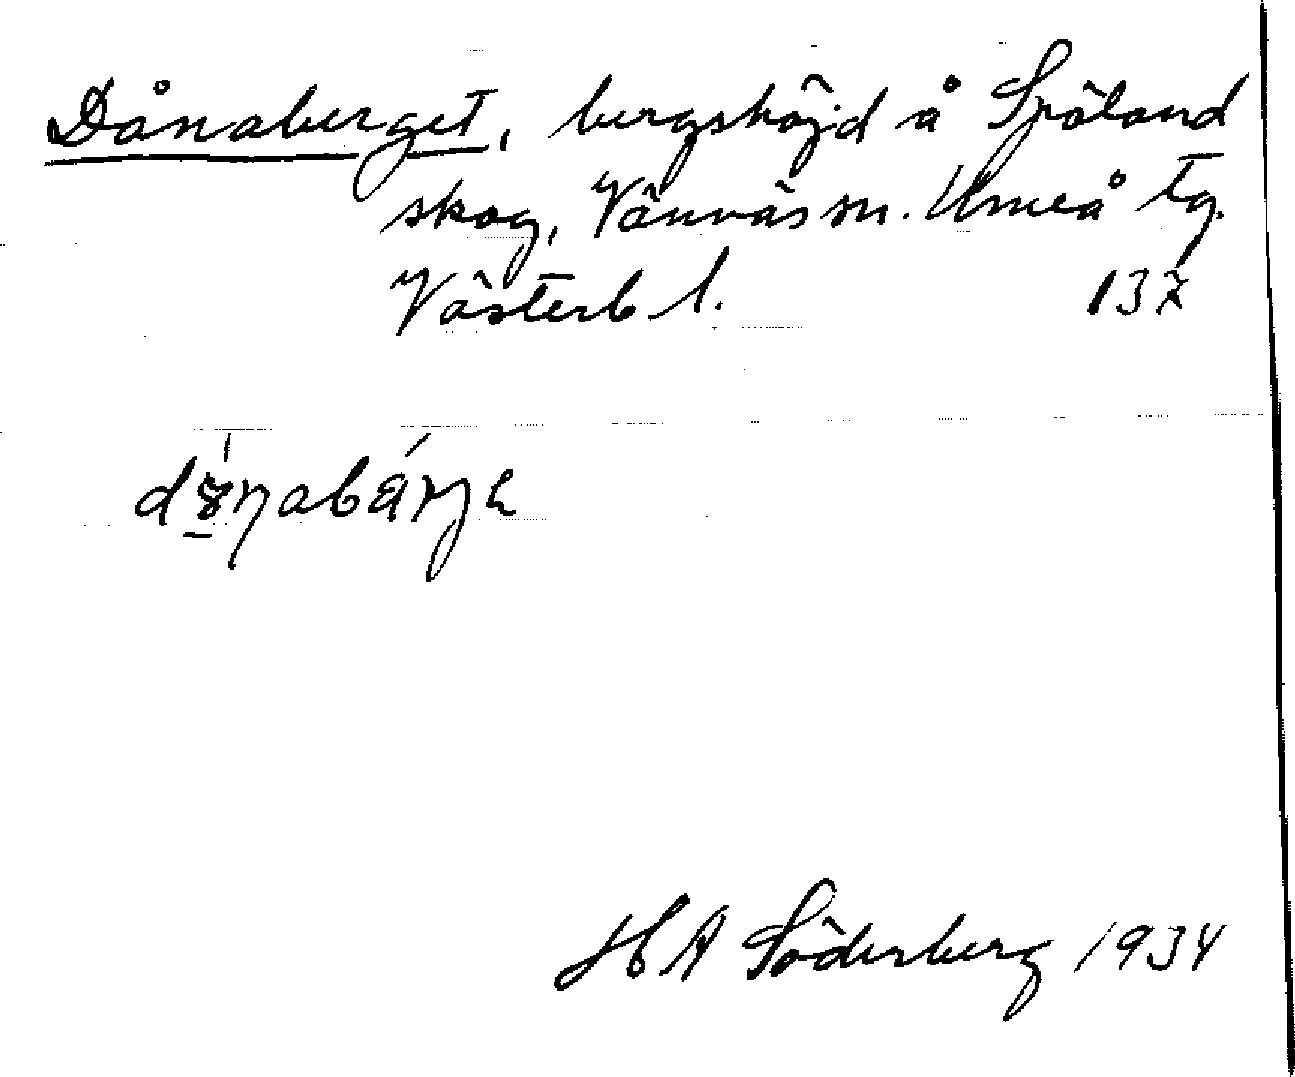 Dånaberget, bergshöjd å Spöland
skog, Vännäs sn. Umeå tg.
Västerb l. 137
H A Söderberg 1934